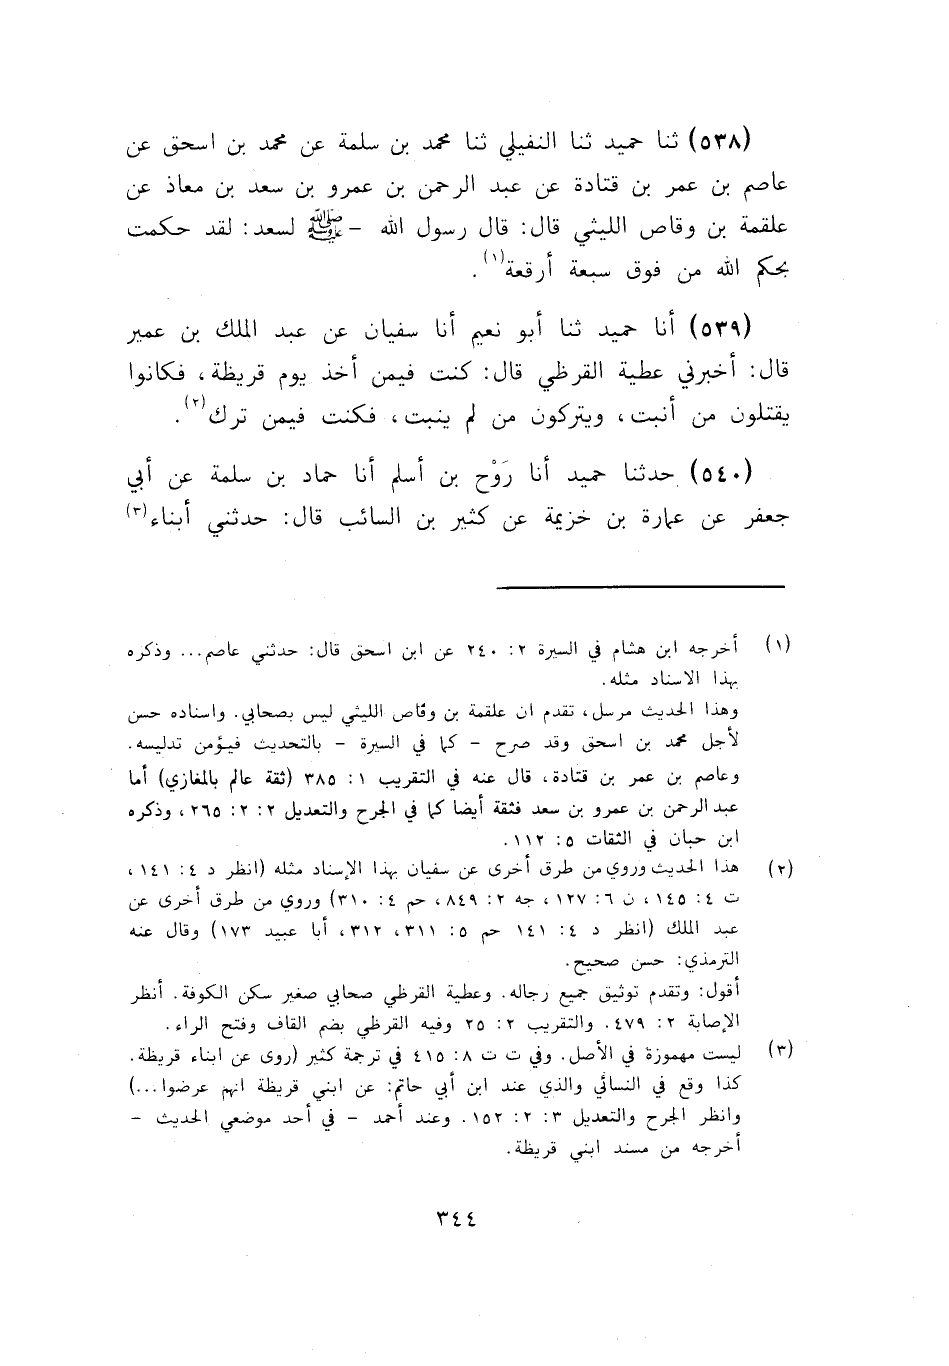 (٥٣٨) ثنا حميد ثنا النفيلي ثنا محمد بن سلمة عن محمد بن اسحق عن
عاصم بن عمر بن قتادة عن عبد الرحمن بن عمرو بن سعد بن معاذ عن
علقمة بن وقاص الليثي قال: قال رسول الله – ﷺ لسعد: لقد حكمت
بحكم الله من فوق سبعة أرقعة(١).
(٥٣٩) أنا حميد ثنا أبو نعيم أنا سفيان عن عبد الملك بن عمير
قال: أخبرني عطية القرظي قال: كنت فيمن أخذ يوم قريظة، فكانوا
يقتلون من أنبت، ويتركون من لم ينبت، فكنت فيمن ترك(٢).
(٥٤٠) حدثنا حميد أنا رَوْح بن أسلم أنا حماد بن سلمة عن أبي
جعفر عن عمارة بن خزيمة عن كثير بن السائب قال: حدثني أبناء(٣)
(١) أخرجه ابن هشام في السيرة ٢: ٢٤٠ عن ابن اسحق قال: حدثني عاصم... وذكره
بهذا الاسناد مثله.
وهذا الحديث مرسل، تقدم ان علقمة بن وقاص الليثي ليس بصحابي. واسناده حسن
لأجل محمد بن اسحق وقد صرح – كما في السيرة – بالتحديث فيؤمن تدليسه.
وعاصم بن عمر بن قتادة، قال عنه في التقريب ١: ٣٨٥ (ثقة عالم بالمغازي) أما
عبد الرحمن بن عمرو بن سعد فثقة أيضا كما في الجرح والتعديل ٢: ٢: ٢٦٥، وذكره
ابن حبان في الثقات ٥: ١١٢.
(٢) هذا الحديث وروي من طرق أخرى عن سفيان بهذا الإسناد مثله (انظر د ٤: ١٤١،
ت ٤: ١٤٥، ن ٦: ١٢٧، جه ٢: ٨٤٩، حم ٤: ٣١٠) وروي من طرق أخرى عن
عبد الملك (انظر د ٤: ١٤١ حم ٥: ٣١١، ٣١٢، أبا عبيد ١٧٣) وقال عنه
الترمذي: حسن صحيح.
أقول: وتقدم توثيق جميع رجاله. وعطية القرظي صحابي صغير سكن الكوفة. أنظر
الإصابة ٢: ٤٧٩. والتقريب ٢: ٢٥ وفيه القرظي بضم القاف وفتح الراء.
(٣) ليست مهموزة في الأصل. وفي ت ت ٨: ٤١٥ في ترجمة كثير (روى عن ابناء قريظة.
كذا وقع في النسائي والذي عند ابن أبي حاتم: عن ابني قريظة انهم عرضوا...)
وانظر الجرح والتعديل ٣: ٢: ١٥٢. وعند أحمد – في أحد موضعي الحديث –
أخرجه من مسند ابني قريظة.
٣٤٤